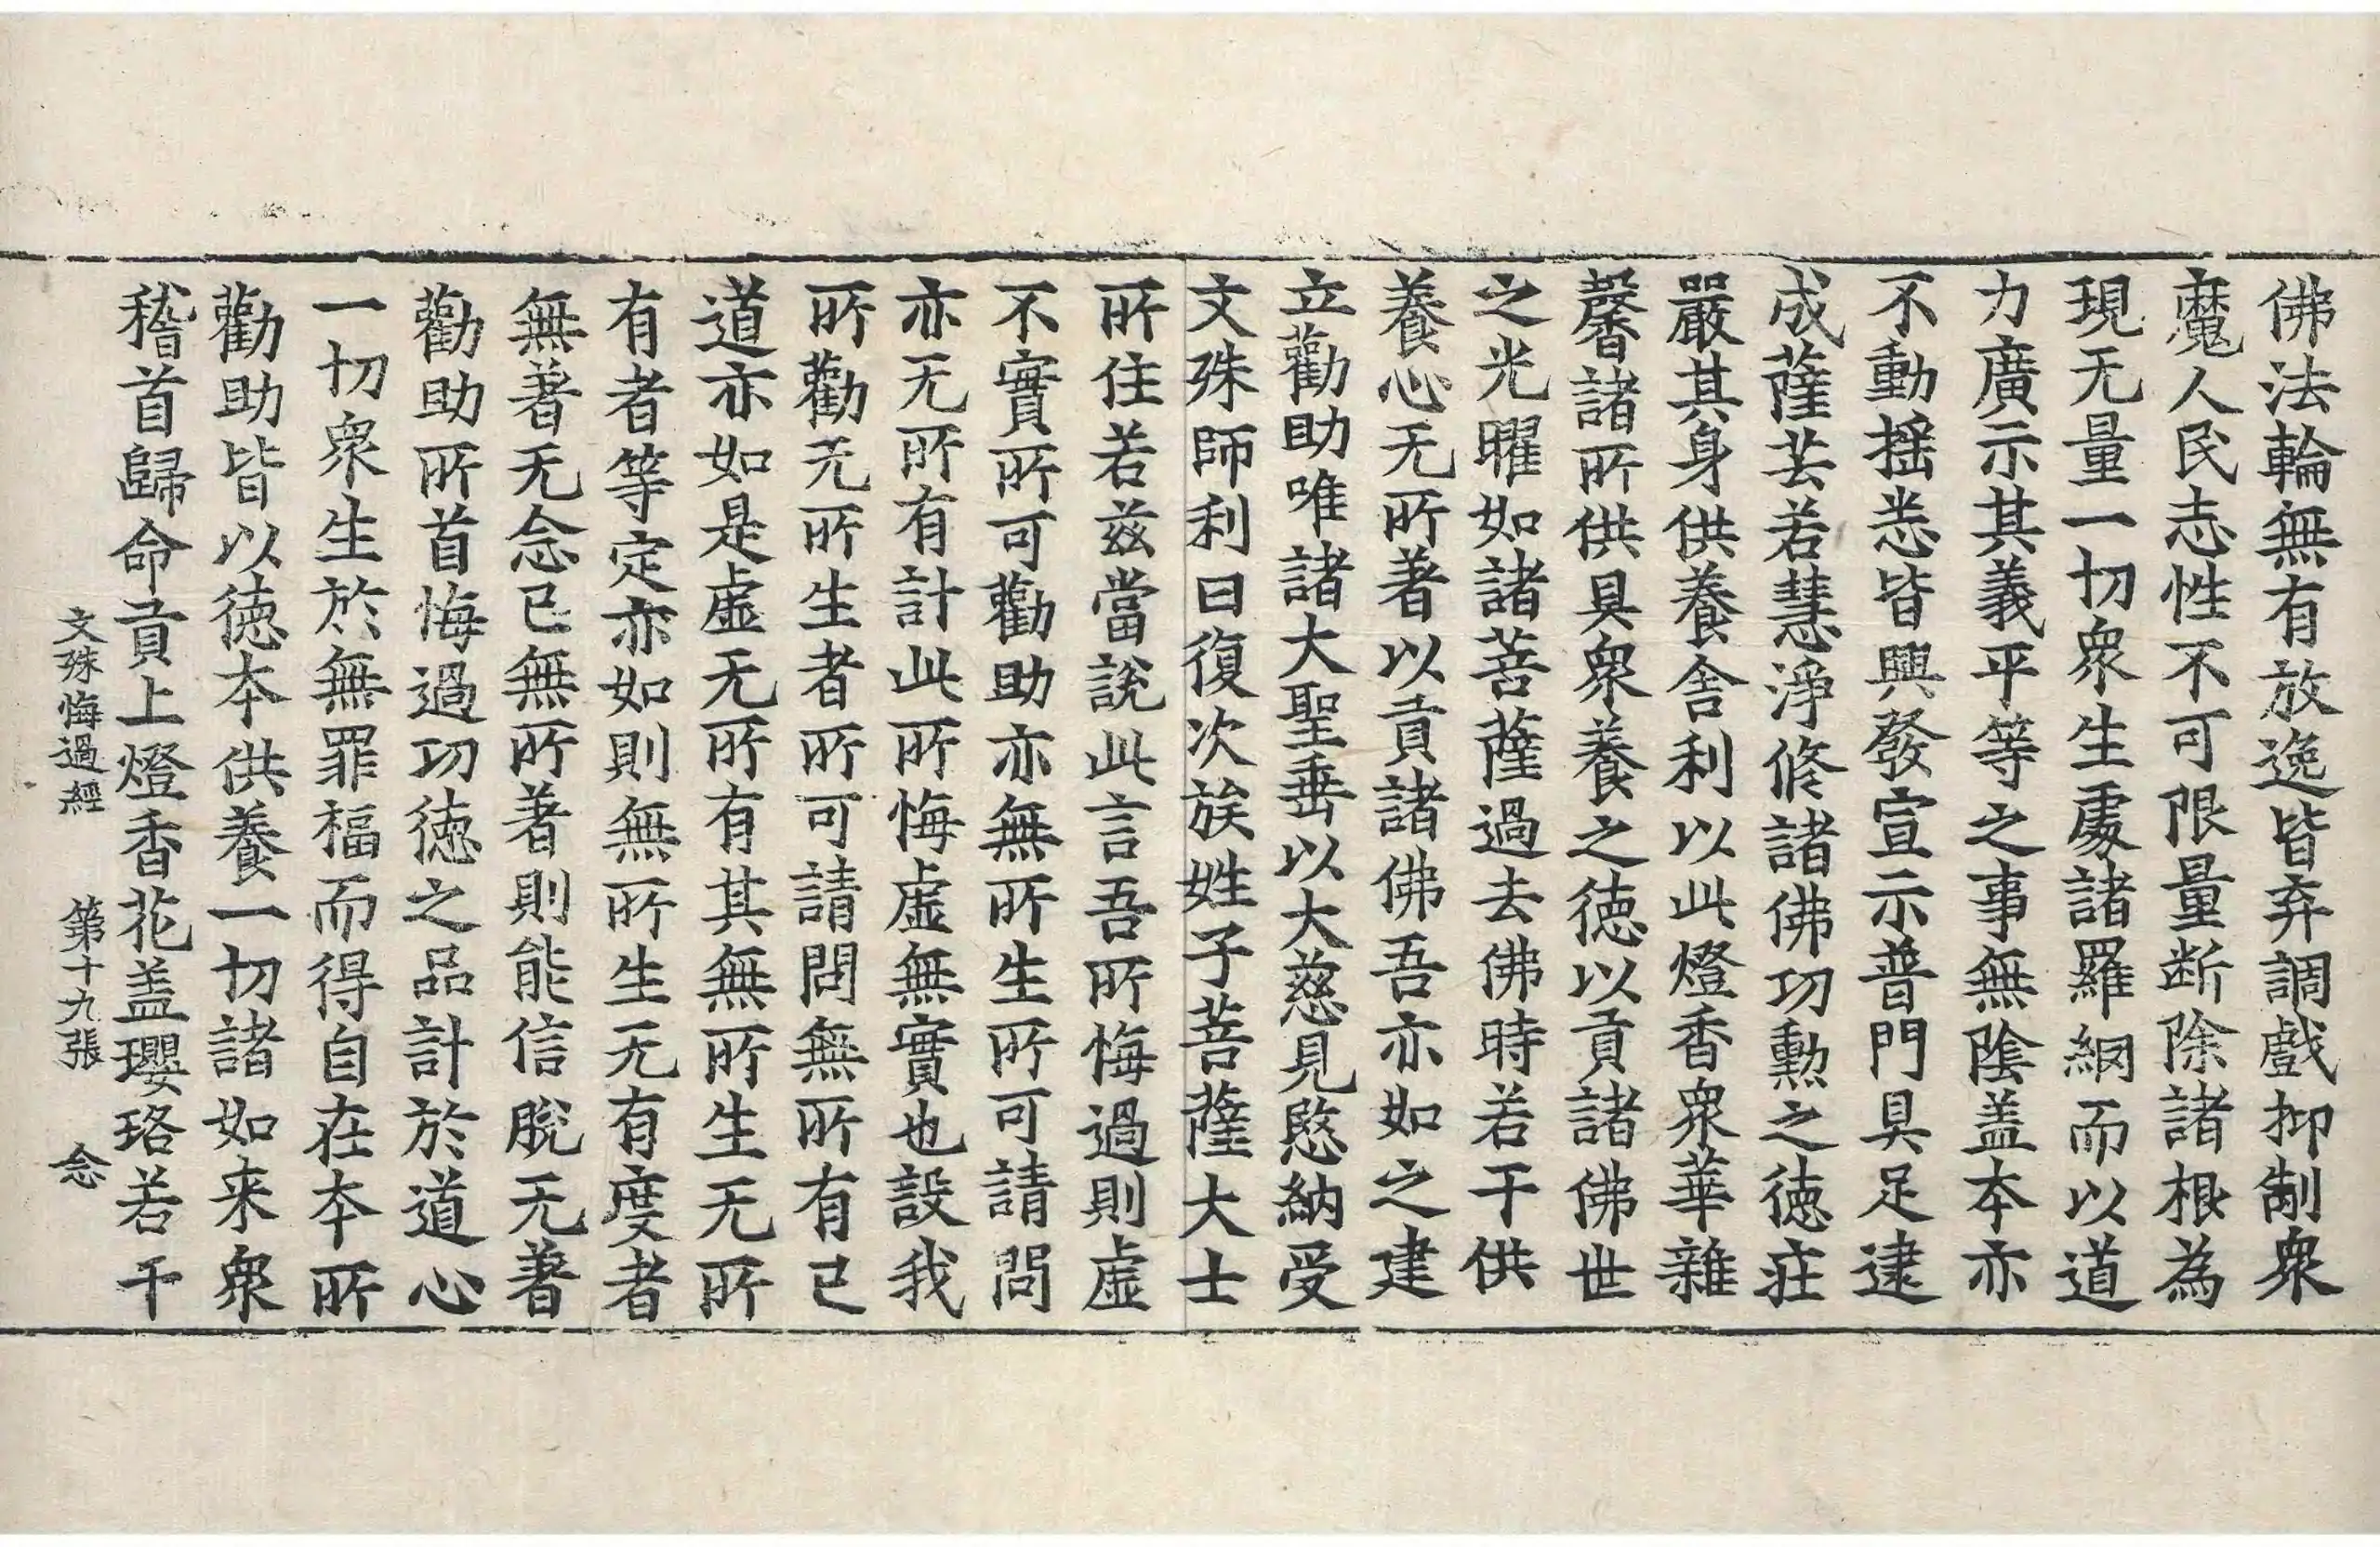 佛法輪無有放逸皆弃調戲抑制衆
魔人民志性不可限量断除諸根為
現无量一切衆生處諸羅網而以道
力廣示其義平等之事無陰盖本亦
不動摇恙皆興發宣示普門具足逮
成薩芸若慧淨修諸佛功勳之徳莊
嚴其身供養舎利以此燈香衆華雜
馨諸所供具衆養之徳以貢諸佛世
之光曜如諸菩薩過去佛時若干供
養心无所著以貢諸佛吾亦如之建
立勸助唯諸大聖垂以大慈見愍納受
文殊師利曰復次族姓子菩薩大士
所住若兹當說此言吾所悔過則虚
不實所可勸助亦無所生所可請問
亦无所有計此所悔虚無實也設我
所勸无所生者所可請問無所有已
道亦如是虚无所有其無所生无所
有者等定亦如則無所生无有度者
無著无念已無所著則能信脫无著
勸助所首悔過功徳之品計於道心
一切衆生於無罪福而得自在本所
勸助皆以徳本供養一切諸如来衆
稽首歸命貢上燈香花盖瓔珞若干
文殊悔過經 第十九張 念